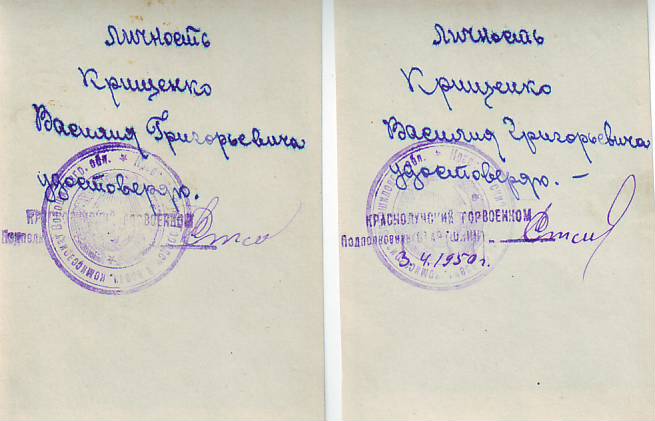 Личность
Крищенко
Василия Григорьевича
удостоверяю.
ГОРВОЕНКОМ
Личность
Крищенко
Василия Григорьевича
удостоверяю. —
КРАСНОЛУЧСКИЙ ГОРВОЕНКОМ
Подполковник
3.4.1950г.